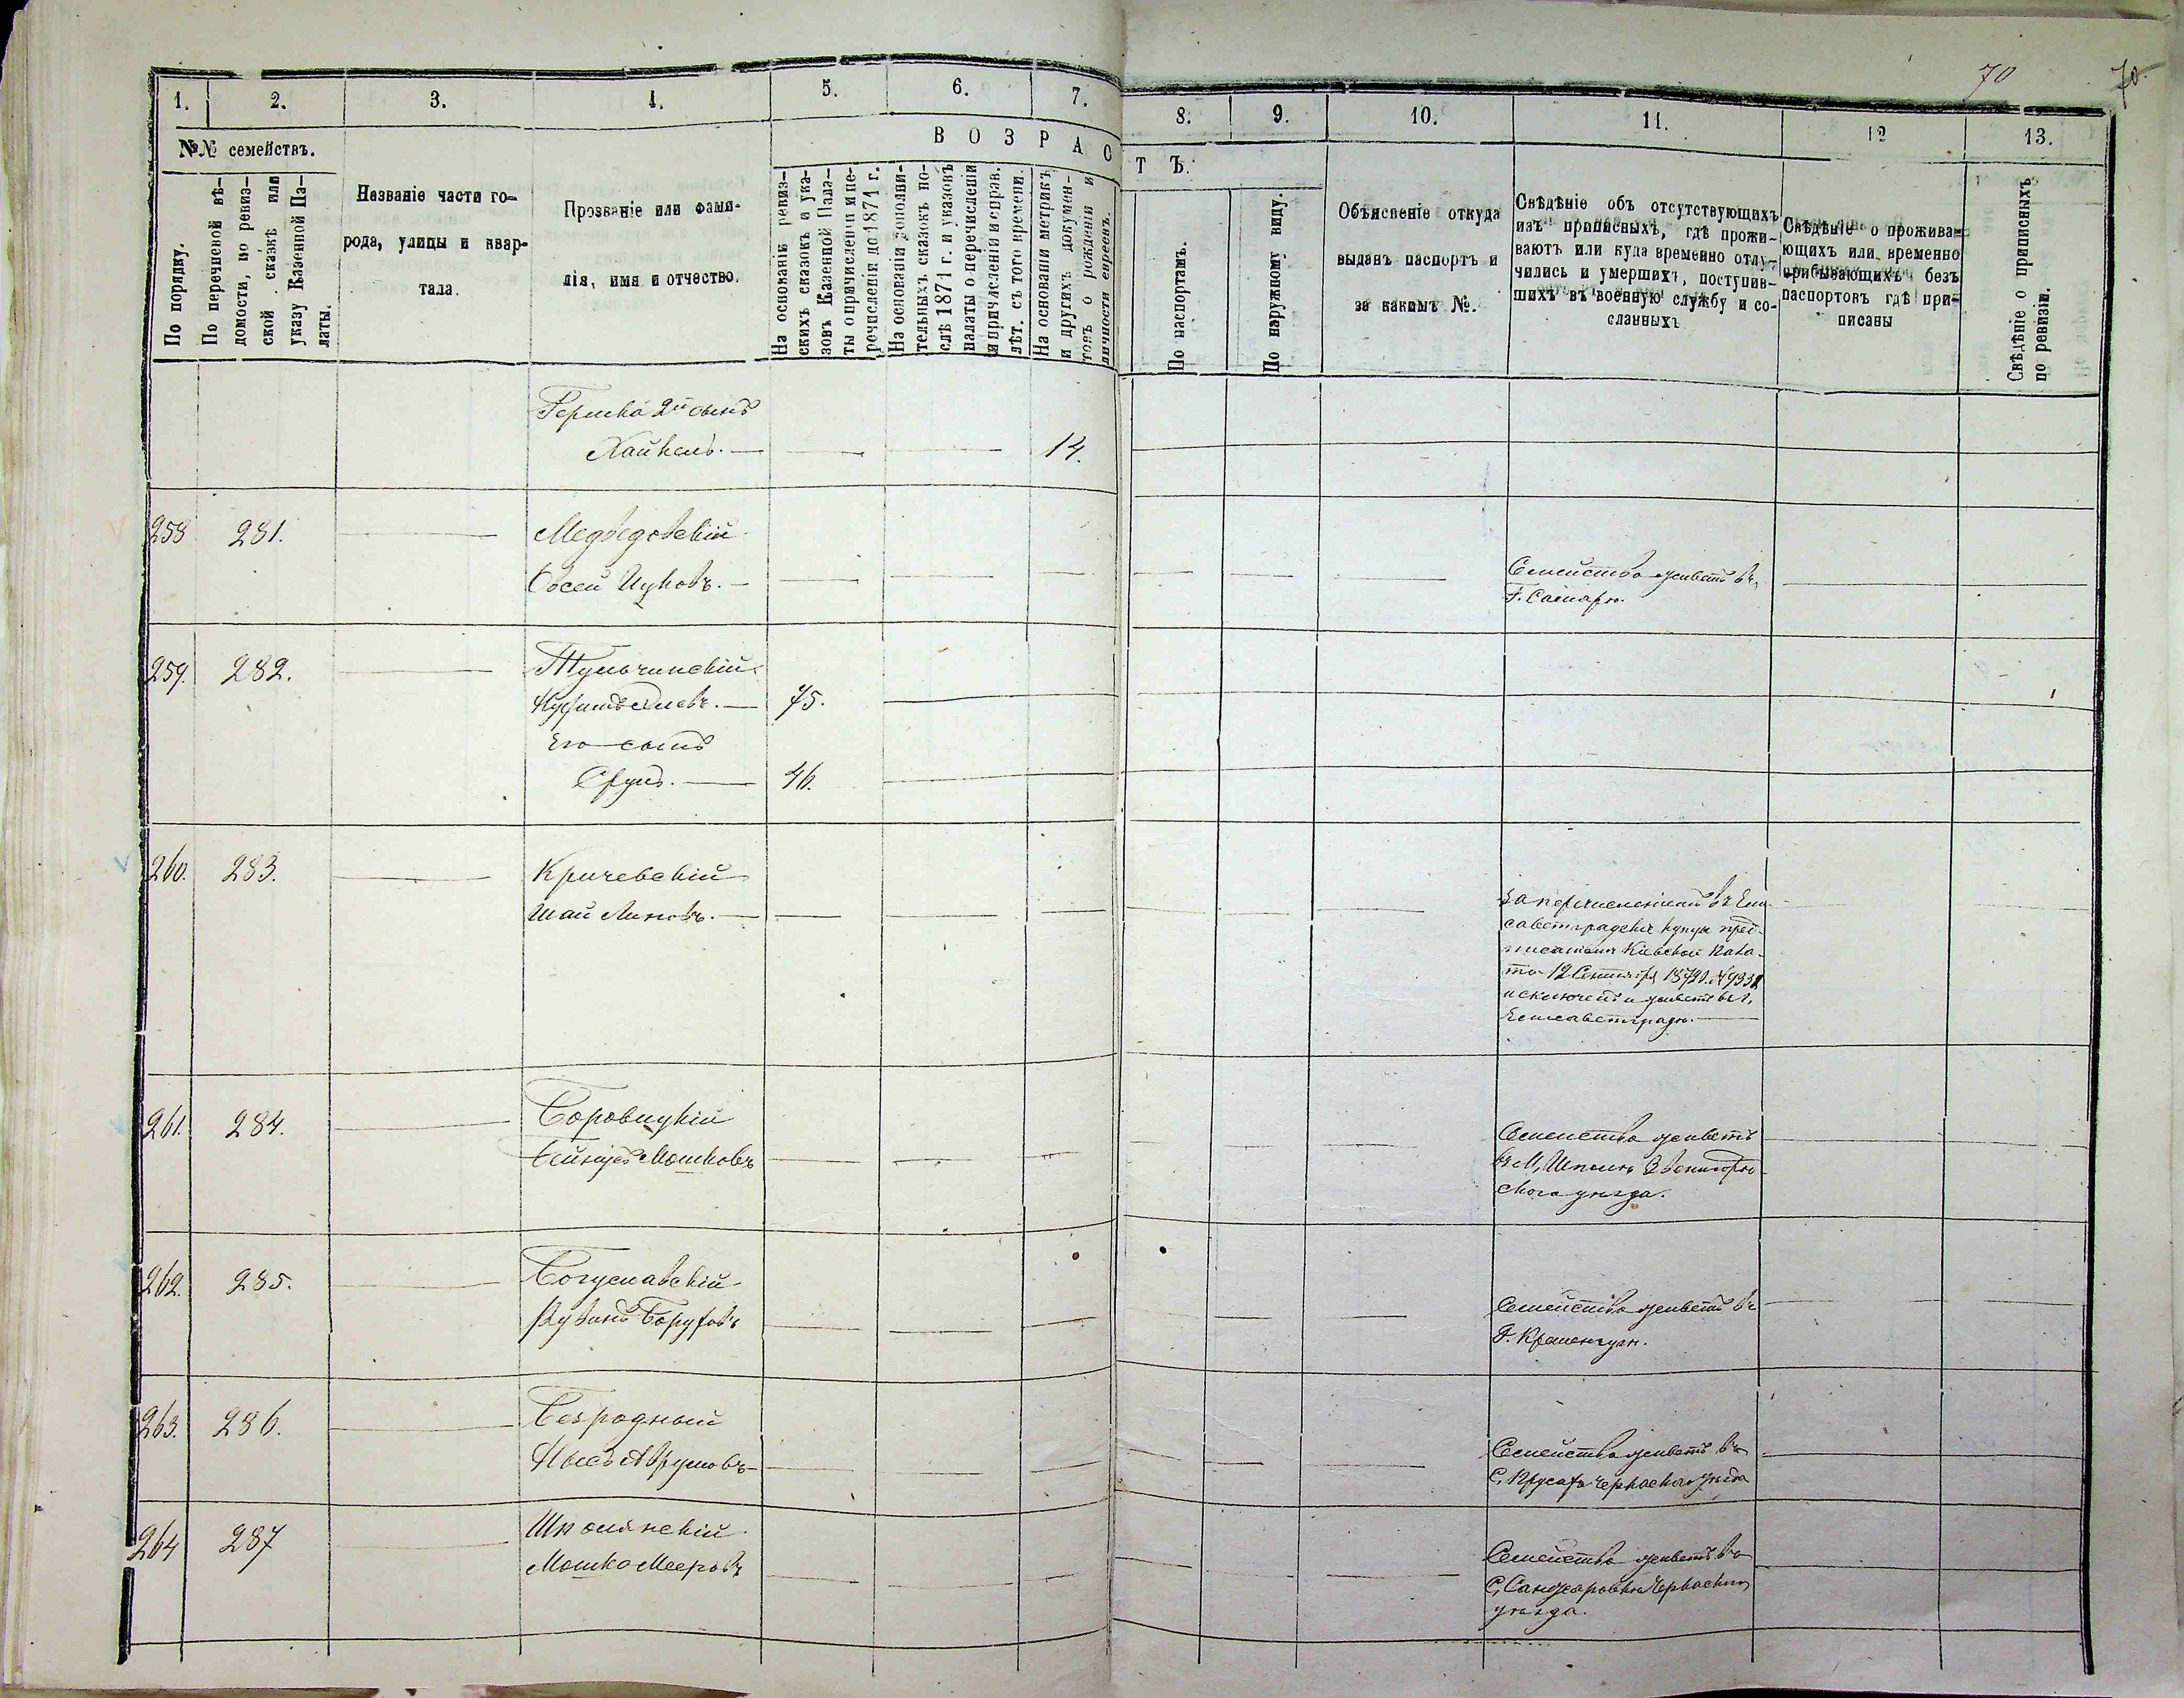 70
70.
1.
2.
3.
4.
5.
6.
7.
8.
9.
10.
11.
12
13.
№№ семействъ.
ВОЗРАСТЪ.
По порядку.
По перечневой вѣ-
домости, по ревиз-
ской сказкѣ или
указу Казенной Па-
латы.
Названіе части го-
рода, улицы и квар-
тала.
Прозваніе или фами-
лія, имя и отчество.
На основаніи ревиз-
скихъ сказокъ и ука-
зовъ Казенной Пала-
ты о причисленіи и пе-
речисленіи до 1871 г.
На основаніи дополни-
тельныхъ сказокъ по-
слѣ 1871 г. и указовъ
палаты о перечисленіи
и причисленіи и справ.
лѣт. съ того времени.
На основаніи метрикъ
и другихъ докумен-
товъ о рожденіи и
личности евреевъ.
По паспортамъ.
По наружному виду.
Объясненіе откуда
выданъ паспортъ и
за какимъ №.
Свѣдѣніе объ отсутствующихъ
изъ приписныхъ, гдѣ прожи-
ваютъ или куда временно отлу-
чились и умершихъ, поступив-
шихъ въ военную службу и со-
сланныхъ
Свѣдѣніе о прожива-
ющихъ или временно
прибывающихъ безъ
паспортовъ гдѣ при-
писаны
Свѣдѣніе о приписныхъ
по ревизіи.
Гершка 2й сынъ
Хайкель. — 14.
258 281. Медведовскій
Овсей Ицковъ.
Семейство живетъ въ
г. Самарѣ.
259. 282. Тульчинскій
75.
Его сынъ
Сруль. — 46.
260. 283. Кричевскій
Шай
За перечисленіемъ въ Ели-
саветградскіе купцы пред-
писаніемъ Кіевской Пала-
ты 12 Сентября 1872 г.
исключенъ и живетъ въ г.
Елисаветградѣ.
261. 284. Боровицкій
Мошковъ
Семейство живетъ
въ М. Шполѣ Звенигород-
ского уѣзда.
262. 285. Богуславскій
Рувинъ Боруховъ
Семейство живетъ въ
г. Кременчугѣ.
263. 286. Безродный
Нысъ Аврумовъ
Семейство живетъ въ
С. Прусахъ Черкаска уѣзда
264 287 Шполянскій
Мошко Мееровъ
Семейство живетъ въ
С. Санжаровкѣ Черкаскаго
уѣзда.